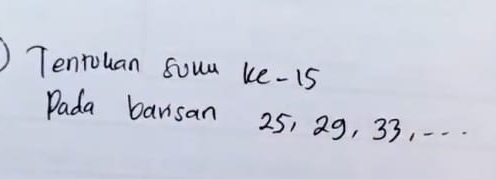 ) Tentukan suku ke-15
Pada barisan 25, 29, 33, ....